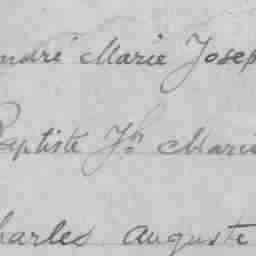 André Marie Joseph
Baptiste Jh Marie
Charles Auguste